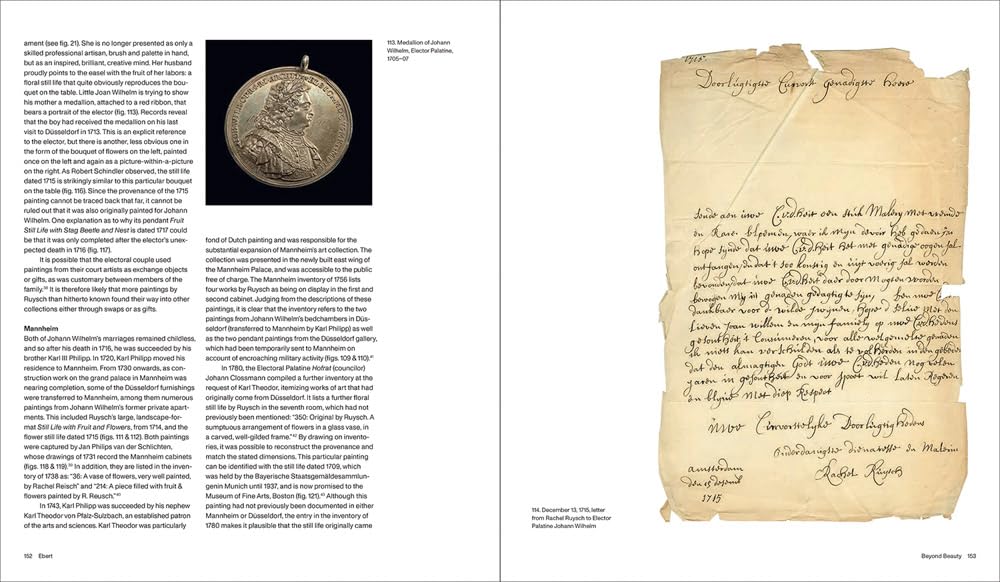 ament (see fig. 21). She is no longer presented as only a
skilled professional artisan, brush and palette in hand,
but as an inspired, brilliant, creative mind. Her husband
proudly points to the easel with the fruit of her labors: a
floral still life that quite obviously reproduces the bou-
quet on the table. Little Joan Wilhelm is trying to show
his mother a medallion, attached to a red ribbon, that
bears a portrait of the elector (fig. 113). Records reveal
that the boy had received the medallion on his last
visit to Düsseldorf in 1713. This is an explicit reference
to the elector, but there is another, less obvious one in
the form of the bouquet of flowers on the left, painted
once on the left and again as a picture-within-a-picture
on the right. As Robert Schindler observed, the still life
dated 1715 is strikingly similar to this particular bouquet
on the table (fig. 116). Since the provenance of the 1715
painting cannot be traced back that far, it cannot be
ruled out that it was also originally painted for Johann
Wilhelm. One explanation as to why its pendant Fruit
Still Life with Stag Beetle and Nest is dated 1717 could
be that it was only completed after the elector's unex-
pected death in 1716 (fig. 117).
It is possible that the electoral couple used
paintings from their court artists as exchange objects
or gifts, as was customary between members of the
family.³⁸ It is therefore likely that more paintings by
Ruysch than hitherto known found their way into other
collections either through swaps or as gifts.
Mannheim
Both of Johann Wilhelm's marriages remained childless,
and so after his death in 1716, he was succeeded by his
brother Karl III Philipp. In 1720, Karl Philipp moved his
residence to Mannheim. From 1730 onwards, as con-
struction work on the grand palace in Mannheim was
nearing completion, some of the Düsseldorf furnishings
were transferred to Mannheim, among them numerous
paintings from Johann Wilhelm's former private apart-
ments. This included Ruysch's large, landscape-for-
mat Still Life with Fruit and Flowers, from 1714, and the
flower still life dated 1715 (figs. 111 & 112). Both paintings
were captured by Jan Philips van der Schlichten,
whose drawings of 1731 record the Mannheim cabinets
(figs. 118 & 119).³⁹ In addition, they are listed in the inven-
tory of 1738 as: "36: A vase of flowers, very well painted,
by Rachel Reisch" and "214: A piece filled with fruit &
flowers painted by R. Reusch."⁴⁰
In 1743, Karl Philipp was succeeded by his nephew
Karl Theodor von Pfalz-Sulzbach, an established patron
of the arts and sciences. Karl Theodor was particularly
113. Medallion of Johann
Wilhelm, Elector Palatine,
1705–07
fond of Dutch painting and was responsible for the
substantial expansion of Mannheim's art collection. The
collection was presented in the newly built east wing of
the Mannheim Palace, and was accessible to the public
free of charge. The Mannheim inventory of 1756 lists
four works by Ruysch as being on display in the first and
second cabinet. Judging from the descriptions of these
paintings, it is clear that the inventory refers to the two
paintings from Johann Wilhelm's bedchambers in Düs-
seldorf (transferred to Mannheim by Karl Philipp) as well
as the two pendant paintings from the Düsseldorf gallery,
which had been temporarily sent to Mannheim on
account of encroaching military activity (figs. 109 & 110).⁴¹
In 1780, the Electoral Palatine Hofrat (councilor)
Johann Clossmann compiled a further inventory at the
request of Karl Theodor, itemizing works of art that had
originally come from Düsseldorf. It lists a further floral
still life by Ruysch in the seventh room, which had not
previously been mentioned: "350: Original by Ruysch. A
sumptuous arrangement of flowers in a glass vase, in
a carved, well-gilded frame."⁴² By drawing on invento-
ries, it was possible to reconstruct the provenance and
match the stated dimensions. This particular painting
can be identified with the still life dated 1709, which
was held by the Bayerische Staatsgemäldesammlun-
gen in Munich until 1937, and is now promised to the
Museum of Fine Arts, Boston (fig. 121).⁴³ Although this
painting had not previously been documented in either
Mannheim or Düsseldorf, the entry in the inventory of
1780 makes it plausible that the still life originally came
152 Ebert
1715
Doorlugtigste Genadigste heere
sende aen uwe een stuk Malery met vremde
en Rare bloemen, waer ik mijn devoir heb gedaen
hope sijnde dat uwe het met genadige oogen sal
ontfangen, en dat't soo konstig en uijt voerig sal werden
bevonden dat uwe daer door Mogten worden
bewogen Mij in genaden gedagtig te sijn,
dankbaer voor de wilde swijnen, hope
Lieven Joan willem en mijn familij op
gesontheit, voor alle welgemelte genaden
ik niet kan
dat den almagtigen Godt uwe nog velen
Jaren in gesontheit en voor spoet wil Laten Regeren
en blijve Met diep Respect
Uwe Doorlugtigheden
onderdanigste dienaresse en
Rachel Ruijsch
amsterdam
1715
114. December 13, 1715, letter
from Rachel Ruysch to Elector
Palatine Johann Wilhelm
Beyond Beauty 153